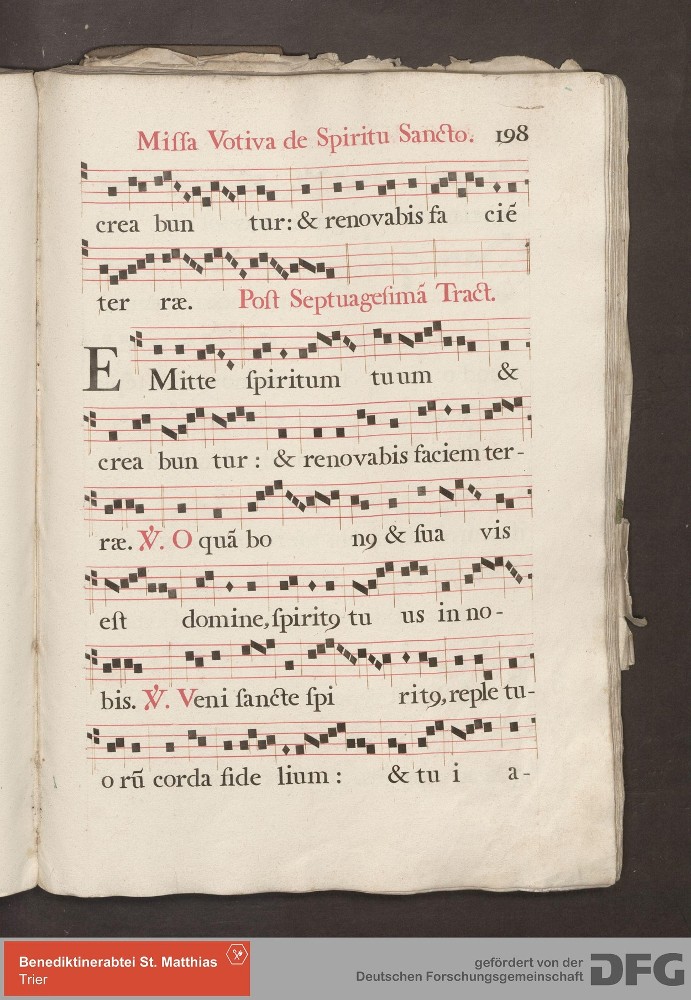 Missa Votiva de Spiritu Sancto. 198
crea bun tur: & renovabis fa ciē
ter ræ. Post Septuagesimã Tract.
EMitte spiritum tuum &
crea bun tur: & renovabis faciem ter-
ræ. ℣. O quã bo nꝰ & sua vis
est domine, spiritꝰ tu us in no-
bis. ℣. Veni sancte spi ritꝰ, reple tu-
o rũ corda fide lium: & tu i a-
Benediktinerabtei St. Matthias
Trier
gefördert von der
Deutschen Forschungsgemeinschaft
DFG